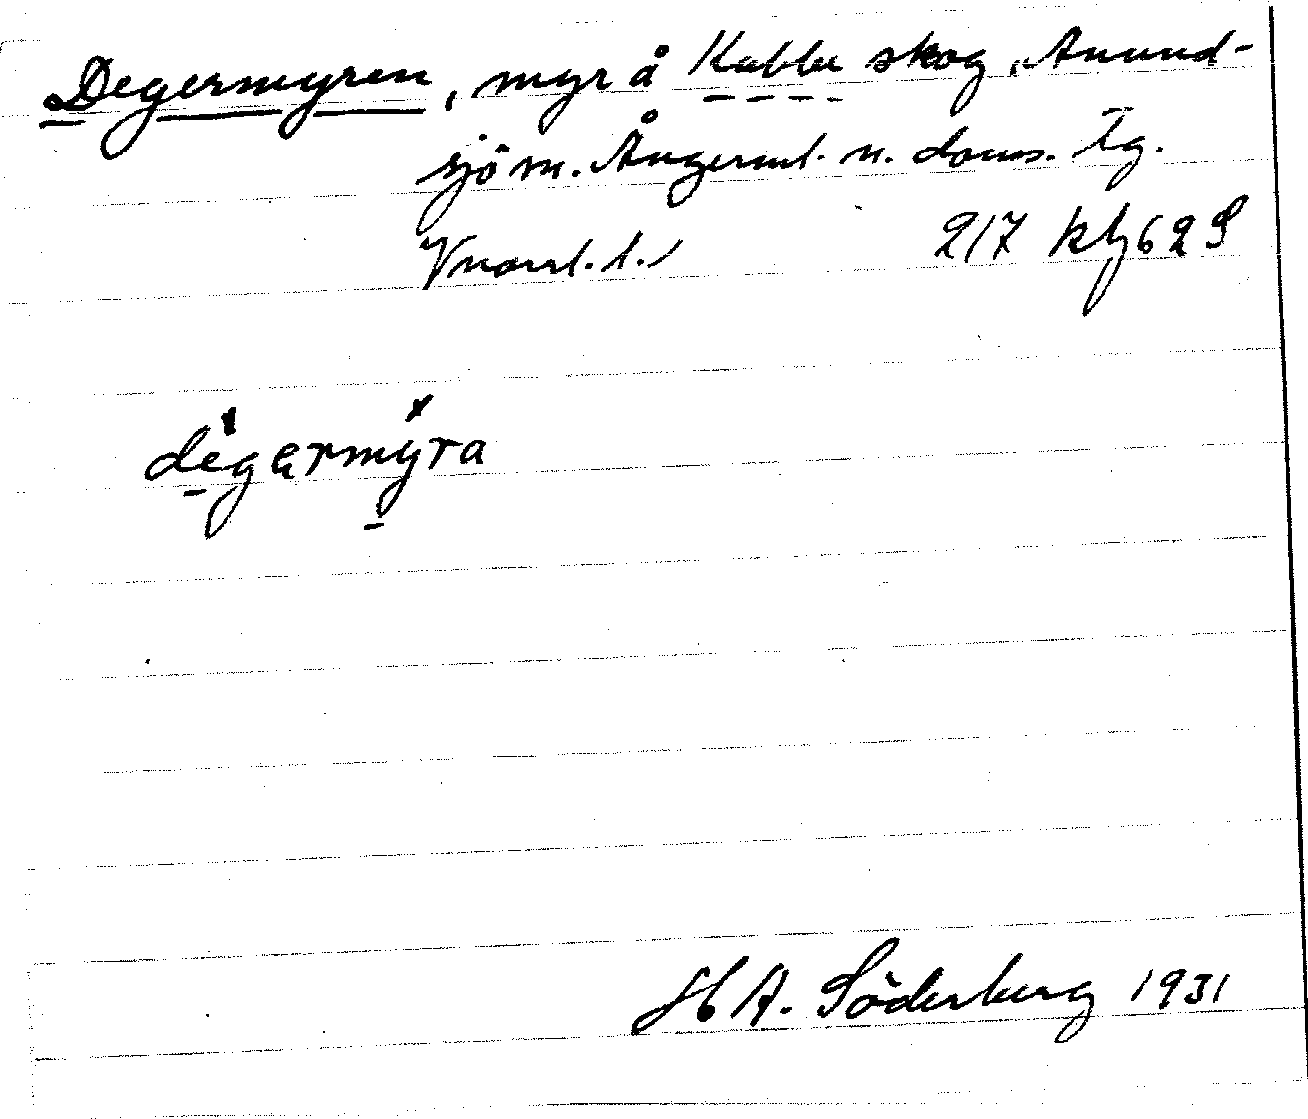 Degermyren, myr å Kubbe skog, Anund-
sjö sn. Ångerml. n. doms. Tg.
Vnorrl. l.
217 kh 62 S
degermyra
H A. Söderberg 1931